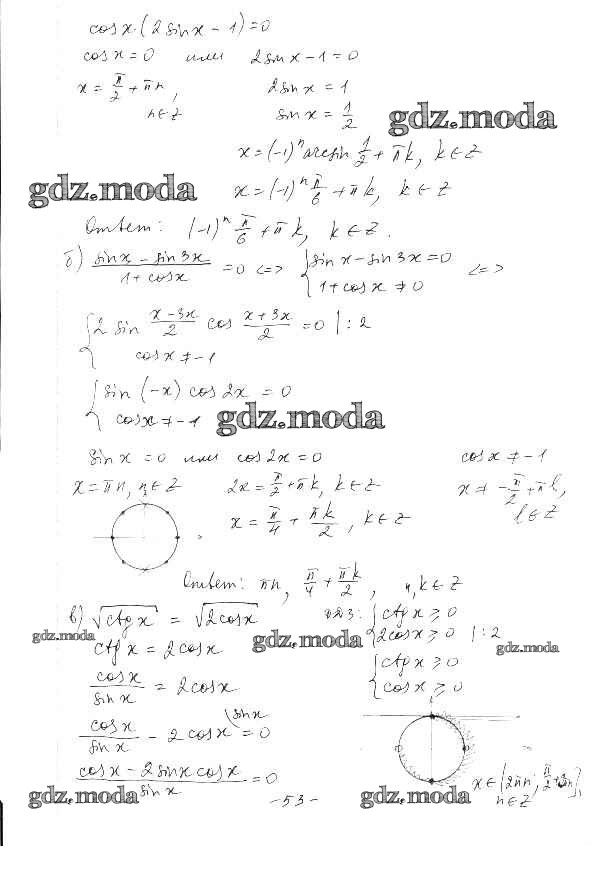 cos x · (2 sin x − 1) = 0
cos x = 0 или 2 sin x − 1 = 0
x = π/2 + πn, 2 sin x = 1
n ∈ Z sin x = 1/2
gdz.moda
x = (−1)ⁿ arcsin 1/2 + πk, k ∈ Z
gdz.moda x = (−1)ⁿ π/6 + πk, k ∈ Z
Ответ: (−1)ⁿ π/6 + πk, k ∈ Z.
б) (sin x − sin 3x)/(1 + cos x) = 0 <=> { sin x − sin 3x = 0
1 + cos x ≠ 0 <=>
{ 2 sin (x − 3x)/2 cos (x + 3x)/2 = 0 | : 2
cos x ≠ −1
{ sin (−x) cos 2x = 0
cos x ≠ −1 gdz.moda
sin x = 0 или cos 2x = 0 cos x ≠ −1
x = πn, n ∈ Z 2x = π/2 + πk, k ∈ Z x ≠ −π/2 + πl,
x = π/4 + πk/2, k ∈ Z l ∈ Z
Ответ: πn, π/4 + πk/2, n, k ∈ Z
в) √(ctg x) = √(2cos x) ОДЗ: { ctg x ≥ 0
2cos x ≥ 0 | : 2
gdz.moda gdz.moda gdz.moda
ctg x = 2cos x { ctg x ≥ 0
cos x/sin x = 2cos x cos x ≥ 0
cos x/sin x − 2 cos x \sin x = 0
(cos x − 2 sin x cos x)/sin x = 0
x ∈ [2πn; π/2 + 2πn],
n ∈ Z
gdz.moda - 53 - gdz.moda